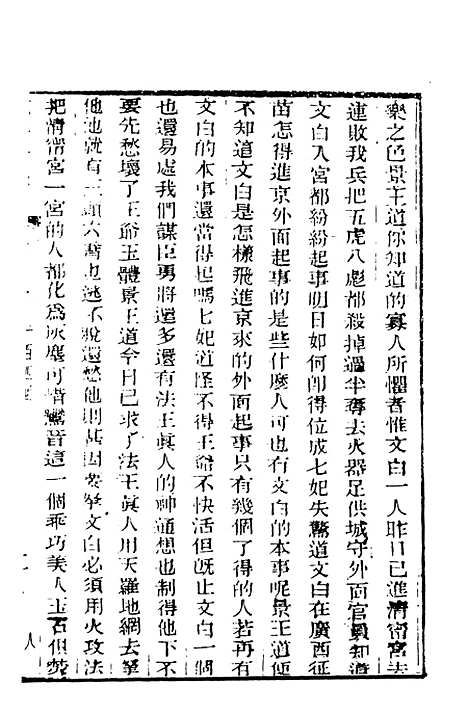 樂之色景王道你知道的寡人所懼者惟文白一人昨日已進清甯宮去
連敗我兵把五虎八彪都殺掉過半奪去火器足供城守外面官員知道
文白入宮都紛紛起事明日如何即得位成七妃失驚道文白在廣西征
苗怎得進京外面起事的是些什麼人可也有文白的本事呢景王道便
不知道文白是怎樣飛進京來的外面起事只有幾個了得的人若再有
文白的本事還當得起嗎七妃道怪不得王爺不快活但旣止文白一個
也還易處我們謀臣勇將還多還有法王眞人的神通想也制得他下不
要先愁壞了王爺玉體景王道今日已求了法王眞人用天羅地網去拏
他他就有三頭六臂也逃不脫還愁他則甚因要拏文白必須用火攻法
把清甯宮一宮的人都化爲灰塵可惜鸞音這一個乖巧美人玉石但焚